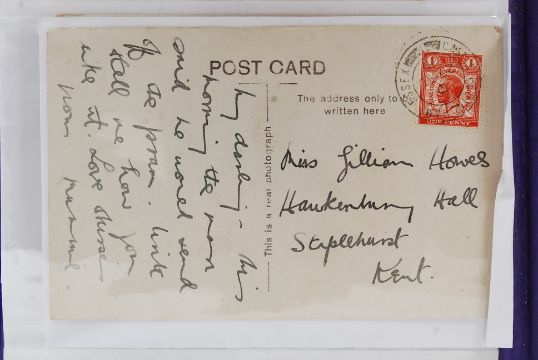 POST CARD
The address only to
written here
This is a real photograph
My darling - this
morning the man
said he would send
of the pram. Write
tell me how you
like it. Love & kisses
from Mummie.
Miss Gillian Howes
Hawkenbury Hall
Staplehurst
Kent.
ESSEX
1D
1D
ONE PENNY